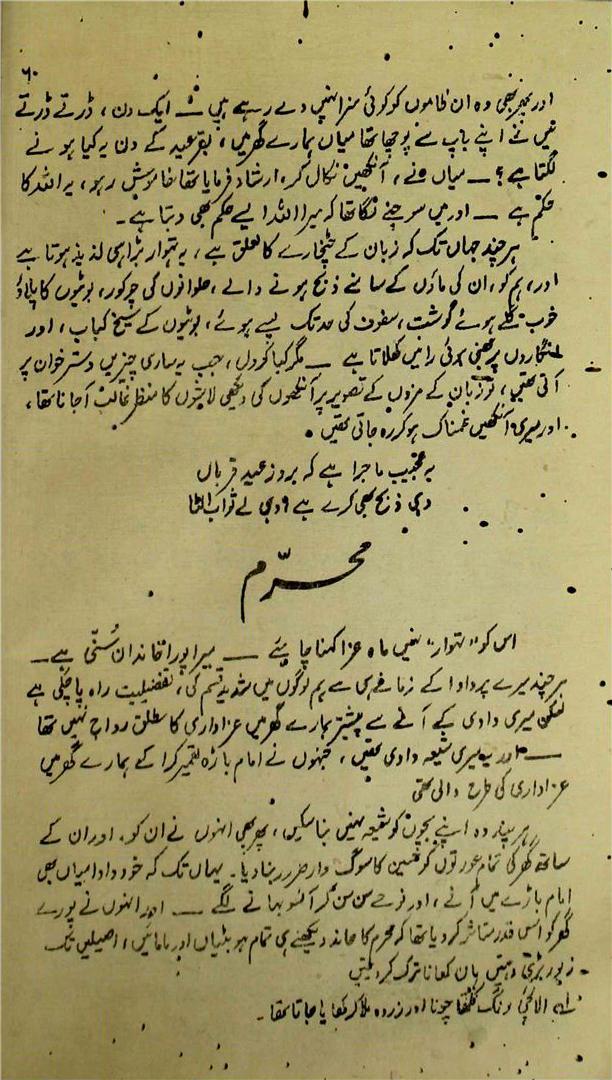 ۶۰
اور پھر بھی وہ ان ظالموں کو کوئی سزا نہیں دے رہے ہیں ــ ایک دن، ڈرتے ڈرتے
میں نے اپنے باپ سے پوچھا تھا میاں ہمارے گھر میں، بقر عید کے دن یہ کیا ہونے
لگتا ہے؟ ــ میاں نے، آنکھیں نکال کر، ارشاد فرمایا تھا خاموش رہو، یہ اللہ کا
حکم ہے ــ اور میں سوچنے لگا تھا کہ میرا اللہ ایسے حکم بھی دیتا ہے۔
ہر چند جہاں تک کہ زبان کے چٹخارے کا تعلق ہے، یہ تہوار بڑا ہی لذیذ ہوتا ہے
اور، ہم کو، ان کی ماؤں کے سامنے ذبح ہونے والے، حلوانوں کی چرکور، بوٹیوں کا پلاؤ
خوب گلے ہوئے گوشت، سفوف کی حد تک پسے ہوئے، بوٹیوں کے سیخ کباب، اور
انگاروں پر بھنی ہوئی رانیں کھلاتا ہے ــ مگر کیا کروں، جب یہ ساری چیزیں دسترخوان پر
آتی تھیں، تو زبان کے مزوں کے تصویر پر آنکھوں کی دیکھی لاشوں کا منظر غالب آ جاتا تھا،
اور میری آنکھیں غمناک ہو کر رہ جاتی تھیں۔
یہ عجیب ماجرا ہے کہ بروز عید قرباں
وہی ذبح بھی کرے ہے وہی لے ثواب الٹا
محرّم
اس کو "تہوار" نہیں ماہ عزا کہنا چاہئے ــ میرا پورا خاندان سُنّی ہے ــ
ہر چند میرے پردادا کے زمانے ہی سے ہم لوگوں میں شدید قسم کی، تفضیلیت راہ پا چکی ہے
لیکن میری دادی کے آنے سے پیشتر ہمارے گھر میں عزاداری کا مطلق رواج نہیں تھا
ــ اور یہ میری شیعہ دادی تھیں، جنہوں نے امام باڑہ تعمیر کرا کے ہمارے گھر میں
عزاداری کی طرح ڈالی تھی
ہر چند وہ اپنے بچوں کو شیعہ نہیں بنا سکیں، پھر بھی انہوں نے ان کو۔ اور ان کے
ساتھ گھر کی تمام عورتوں کو حسین کا سوگ وار ضرور بنا دیا۔ یہاں تک کہ خود دادا میاں بھی
امام باڑے میں آنے، اور نوحے سن سن کر آنسو بہانے لگے ــ اور انہوں نے پورے
گھر کو اس قدر متاثر کر دیا تھا کہ محرم کا چاند دیکھتے ہی تمام بہو بٹیاں اور مامائیں، اصیلیں تک
زیور بڑھا دیتیں پان کھانا ترک کر دیتیں
لے الائچی ونگ کتھا چونا اور زردہ ملا کر کھایا جاتا تھا۔